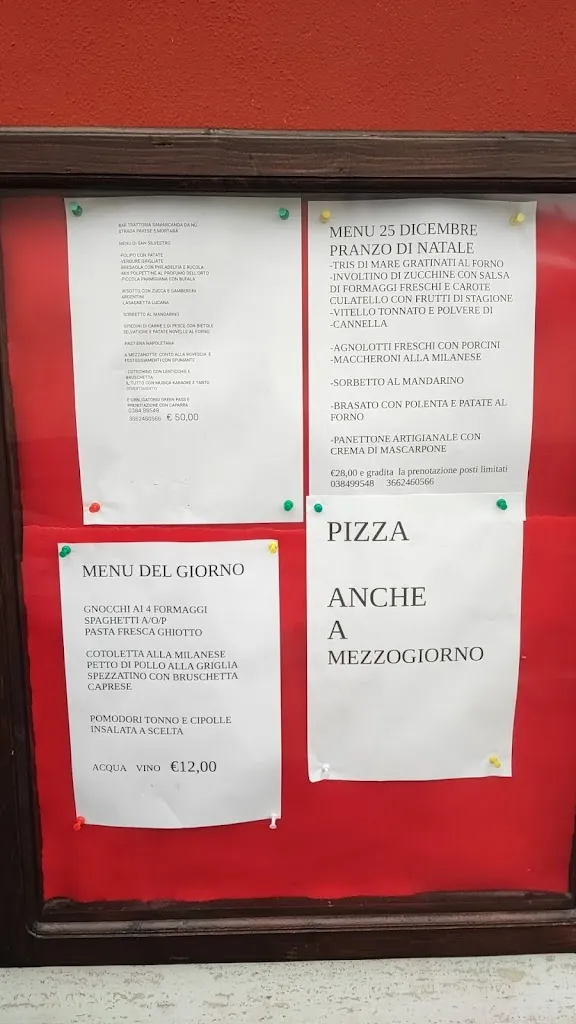 BAR TRATTORIA SAMARCANDA DA NÙ
STRADA PAVESE 5, MORTARA
MENU DI SAN SILVESTRO
-POLIPO CON PATATE
-VERDURE GRIGLIATE
-BRESAOLA CON PHILADELFIA E RUCOLA
-MIX POLPETTINE AL PROFUMO DELL'ORTO
-PICCOLA PARMIGIANA CON BUFALA
-RISOTTO CON ZUCCA E GAMBERONI
ARGENTINI
-LASAGNETTA LUCANA
-SORBETTO AL MANDARINO
-SPIEDINI DI CARNE E DI PESCE CON BIETOLE
SELVATICHE E PATATE NOVELLE AL FORNO
-PASTIERA NAPOLETANA
A MEZZANOTTE CONTO ALLA ROVESCIA E
FESTEGGIAMENTI CON SPUMANTE
- COTECHINO CON LENTICCHIE E
BRUSCHETTA
IL TUTTO CON MUSICA KARAOKE E TANTO
DIVERTIMENTO
E OBBLIGATORIO GREEN PASS E
PRENOTAZIONE CON CAPARRA
038499548
3662460566 € 50,00
MENU 25 DICEMBRE
PRANZO DI NATALE
-TRIS DI MARE GRATINATI AL FORNO
-INVOLTINO DI ZUCCHINE CON SALSA
DI FORMAGGI FRESCHI E CAROTE
CULATELLO CON FRUTTI DI STAGIONE
-VITELLO TONNATO E POLVERE DI
-CANNELLA
-AGNOLOTTI FRESCHI CON PORCINI
-MACCHERONI ALLA MILANESE
-SORBETTO AL MANDARINO
-BRASATO CON POLENTA E PATATE AL
FORNO
-PANETTONE ARTIGIANALE CON
CREMA DI MASCARPONE
€28,00 e gradita la prenotazione posti limitati
038499548 3662460566
MENU DEL GIORNO
GNOCCHI AI 4 FORMAGGI
SPAGHETTI A/O/P
PASTA FRESCA GHIOTTO
COTOLETTA ALLA MILANESE
PETTO DI POLLO ALLA GRIGLIA
SPEZZATINO CON BRUSCHETTA
CAPRESE
POMODORI TONNO E CIPOLLE
INSALATA A SCELTA
ACQUA VINO €12,00
PIZZA
ANCHE
A
MEZZOGIORNO